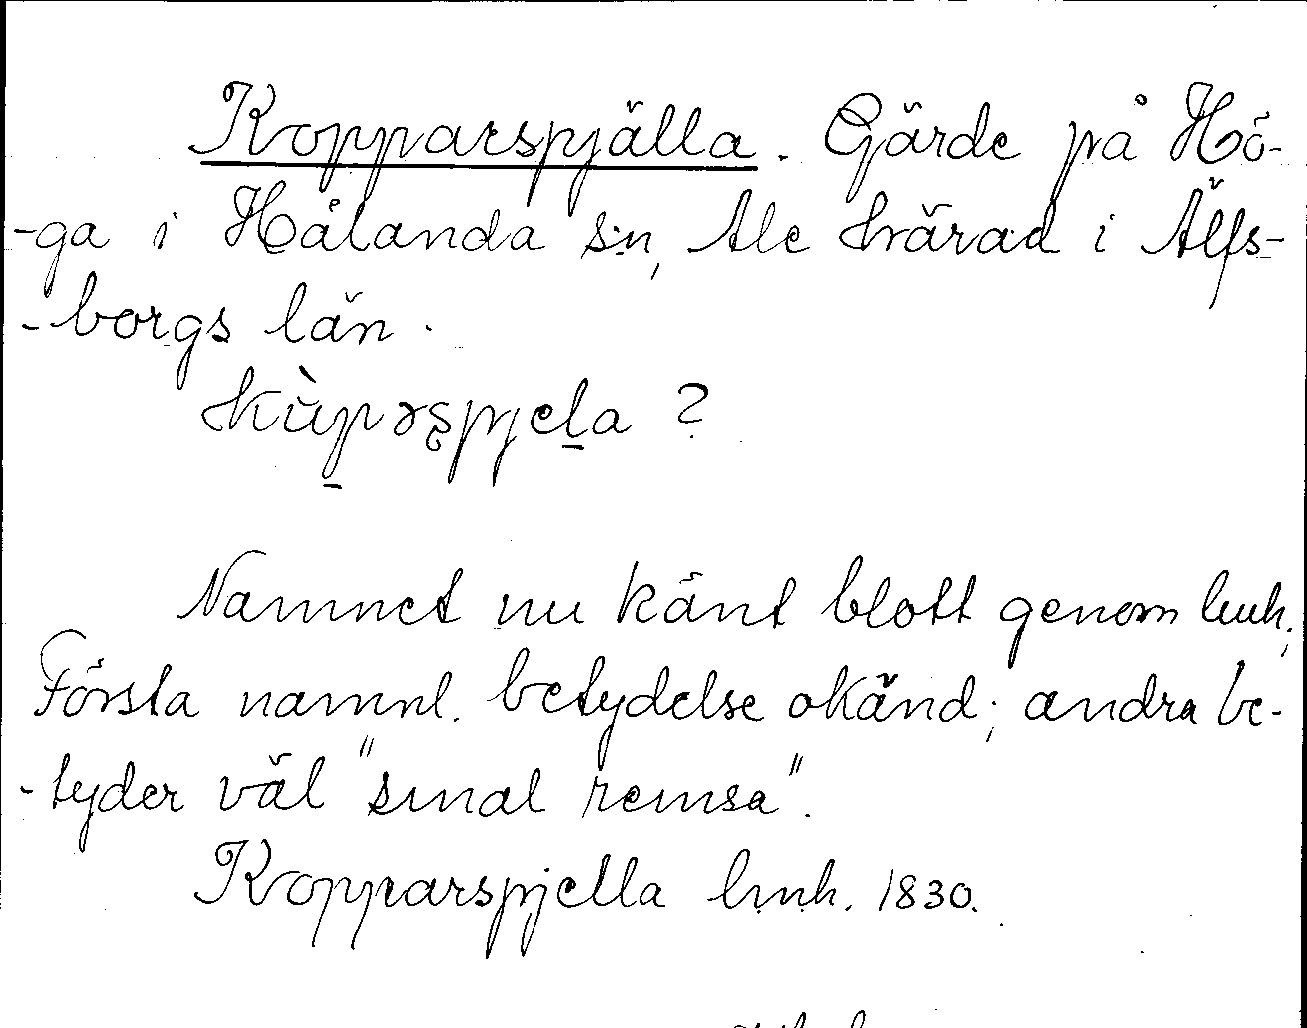 Kopparspjälla. Gärde på Hö-
-ga i Hålanda s:n, Ale härad i Älfs-
-borgs län.
kùpəspjela ?
Namnet nu känt blott genom lmh.;
Första namnl. betydelse okänd; andra be-
-tyder väl "smal remsa".
Kopparspjella lmh. 1830.